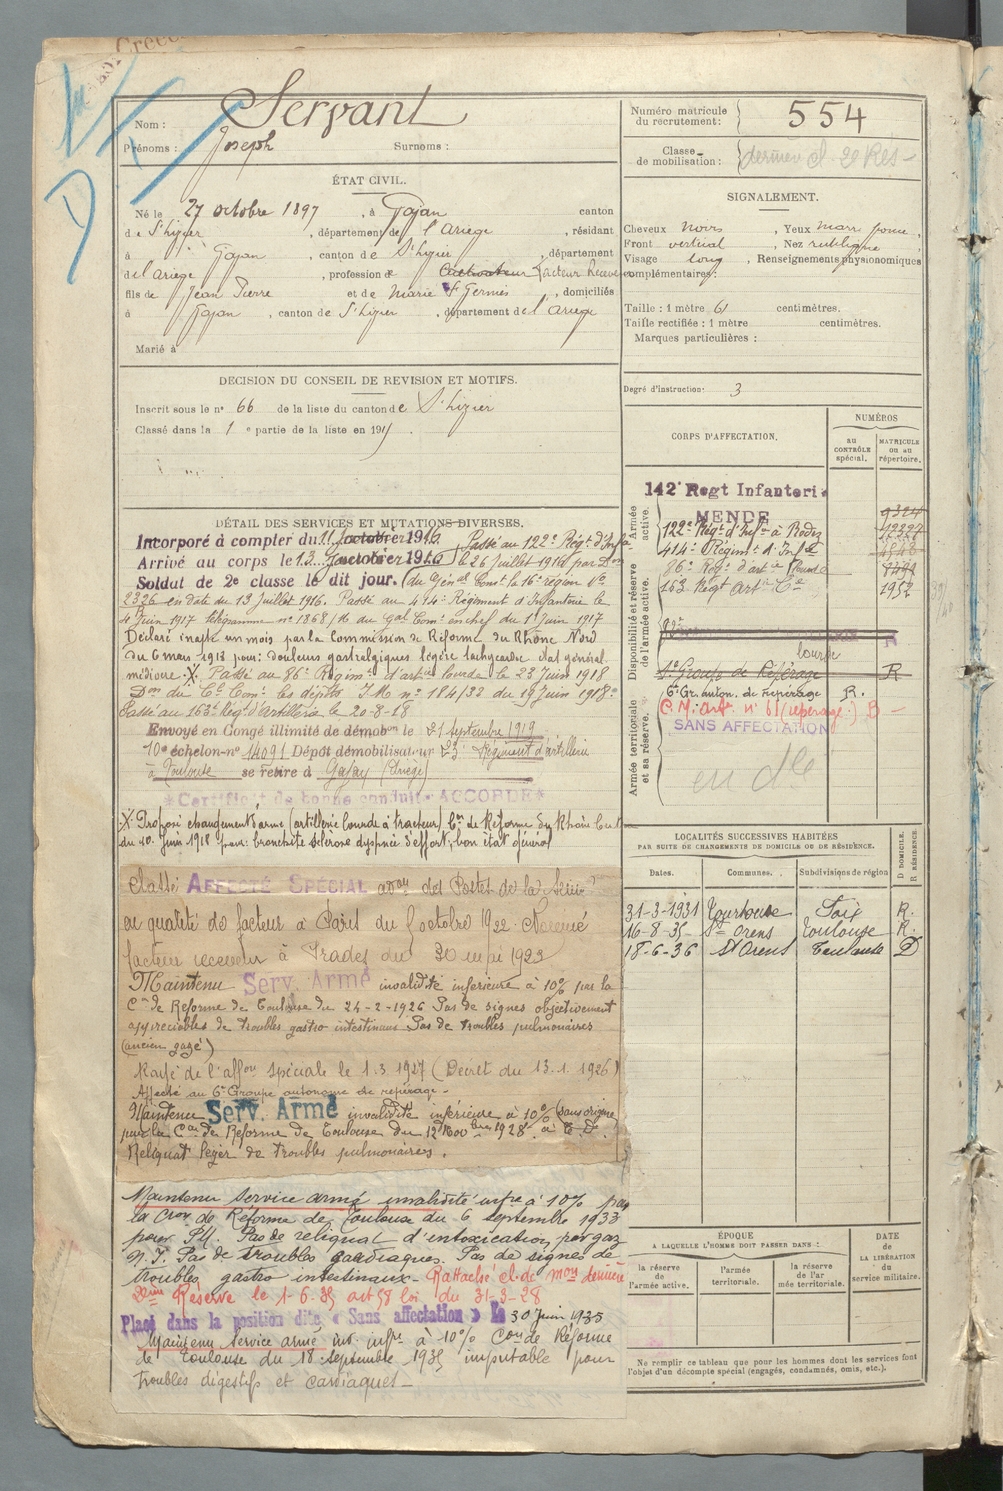 Nom : Servant
Prénoms : Joseph Surnoms :
ÉTAT CIVIL.
Né le 27 octobre 1897, à Gajan canton
de St Lizier, département de l'Ariège, résidant
à Gajan, canton de St Lizier, département
de l'Ariège, profession de Cultivateur facteur receveur
fils de Jean Pierre et de Marie St Germès, domiciliés
à Gajan, canton de St Lizier, département de l'Ariège
Marié à
DECISION DU CONSEIL DE REVISION ET MOTIFS.
Inscrit sous le n° 66 de la liste du canton de St Lizier
Classé dans la 1e partie de la liste en 191
DÉTAIL DES SERVICES ET MUTATIONS DIVERSES.
Incorporé à compter du 11 1916 Passé au 122e Régt d'Infie
Arrivé au corps le 13 1916 le 26 juillet 1916 par Don
Soldat de 2e classe le dit jour. du Général Comt la 16e région No
2326 en date du 13 juillet 1916. Passé au 414e Régiment d'Infanterie le
4 juin 1917 télégramme n° 1868/16 du Gal Comt en chef du 1er juin 1917
Déclaré inapte un mois par la Commission de Réforme du Rhône Nord
du 6 mars 1918 pour : douleurs gastralgiques légère tachycardie état général
médiocre. X. Passé au 86e Régimt d'artie lourde le 23 juin 1918
Don du Cl Comt les dépôts I.M. n° 184/32 du 19 juin 1918
Passé au 163e Régt d'Artillerie le 20-8-18
Envoyé en Congé illimité de démobon le 21 septembre 1919
10e échelon n° 14091 Dépôt démobilisateur 23e Régiment d'artillerie
à Toulouse se retire à Gajan (Ariège)
*Certificat de bonne conduite ACCORDÉ*
X. Proposé changement d'arme (artillerie lourde à tracteur) Con de Réforme du Rhône
du 10 juin 1918 pour : bronchite sclérose dyspnée d'effort, bon état général
Classé AFFECTÉ SPÉCIAL admon des Postes de la Seine
en qualité de facteur à Paris du 1 octobre 1922. Nommé
facteur receveur à Prades du 30 mai 1923
Maintenu Serv. Armé invalidité inférieure à 10% par la
Con de Réforme de Toulouse du 24-2-1926 Pas de signes objectivement
appréciables de troubles gastro intestinaux Pas de troubles pulmonaires
(ancien gazé)
Rayé de l'affon spéciale le 1.3.1927 (Décret du 13.1.1926)
Affecté au 6e Groupe autonome de repérage -
Maintenu Serv. Armé invalidité inférieure à 10% (sans origine
par la Con de Réforme de Toulouse du 12 9bre 1928.
Reliquat léger de troubles pulmonaires.
Maintenu service armé invalidité infre à 10% par
la Cion de Réforme de Toulouse du 6 septembre 1933
pour P.U. Pas de reliquat d'intoxication par gaz
N.I. Pas de troubles cardiaques. Pas de signes de
troubles gastro intestinaux - Rattaché cl. de mon dernière
2ème Réserve le 1-6-35 art 58 loi du 31-3-28
Placé dans la position dite « Sans affectation » le 30 juin 1935
Maintenu service armé inv. infre à 10% Con de Réforme
de Toulouse du 18 septembre 1935 imputable pour
troubles digestifs et cardiaques -
Numéro matricule
du recrutement : 554
Classe
de mobilisation : dernière cl. 2e Rés -
SIGNALEMENT.
Cheveux noirs, Yeux marr. foncé,
Front vertical, Nez rectiligne
Visage long, Renseignements physionomiques
complémentaires :
Taille : 1 mètre 61 centimètres.
Taille rectifiée : 1 mètre centimètres.
Marques particulières :
Degré d'instruction : 3
CORPS D'AFFECTATION.
NUMÉROS
au CONTRÔLE spécial.
MATRICULE ou au répertoire.
Armée active.
142e Regt Infanterie
MENDE 9324
122e Régt d'Infie à Rodez 12227
414e Régimt d'Infie
86e Régt d'artie lourde
163 Régt Artie 1952
Disponibilité et réserve de l'armée active.
lourde
Groupe de Repérage R
6e Gr. auton. de repérage R.
C.M. Artie n° 61 (repérage) B -
SANS AFFECTATION
Armée territoriale et sa réserve.
en dle
LOCALITÉS SUCCESSIVES HABITÉES
PAR SUITE DE CHANGEMENTS DE DOMICILE OU DE RÉSIDENCE.
Dates. Communes. Subdivisions de région D DOMICILE. R RÉSIDENCE.
31-3-1931 Tourtouse Foix R.
16-8-35 St Orens Toulouse R.
18-6-36 St Orens Toulouse D
ÉPOQUE
A LAQUELLE L'HOMME DOIT PASSER DANS :
DATE DE LA LIBÉRATION du service militaire.
la réserve de l'armée active.
l'armée territoriale.
la réserve de l'armée territoriale.
Ne remplir ce tableau que pour les hommes dont les services font
l'objet d'un décompte spécial (engagés, condamnés, omis, etc.).